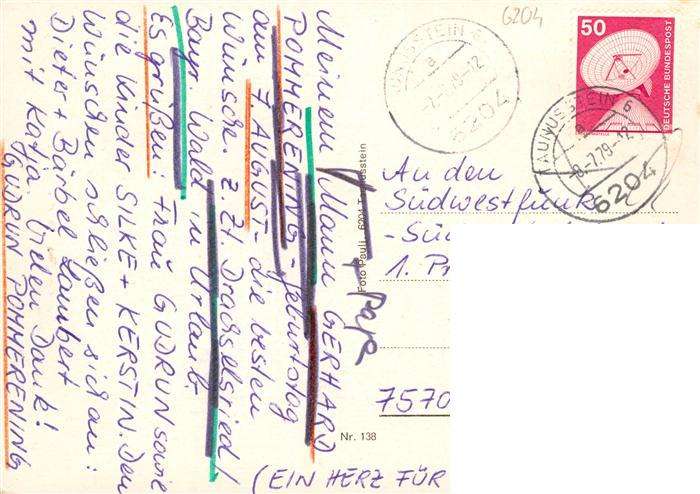 Meinem Mann GERHARD
POMMERENING - Geburtstag
am 7. AUGUST - die besten
Wünsche. z. Zt Drachselsried /
Bayr. Wald in Urlaub.
Es grüßen: Frau GUDRUN sowie
die Kinder SILKE + KERSTIN. Den
Wünschen schließen sich an:
Dieter + Bärbel Lambert
mit Katja. Vielen Dank!
GUDRUN POMMERENING
+ Papa
Foto Pauli, 6204 Taunusstein
Nr. 138
6204
TAUNUSSTEIN 6
a
-12
6204
50
DEUTSCHE BUNDESPOST
TAUNUSSTEIN 6
a
-8.7.79-12
6204
An den
Südwestfunk
-Sü
1. Pr
7570
(EIN HERZ FÜR